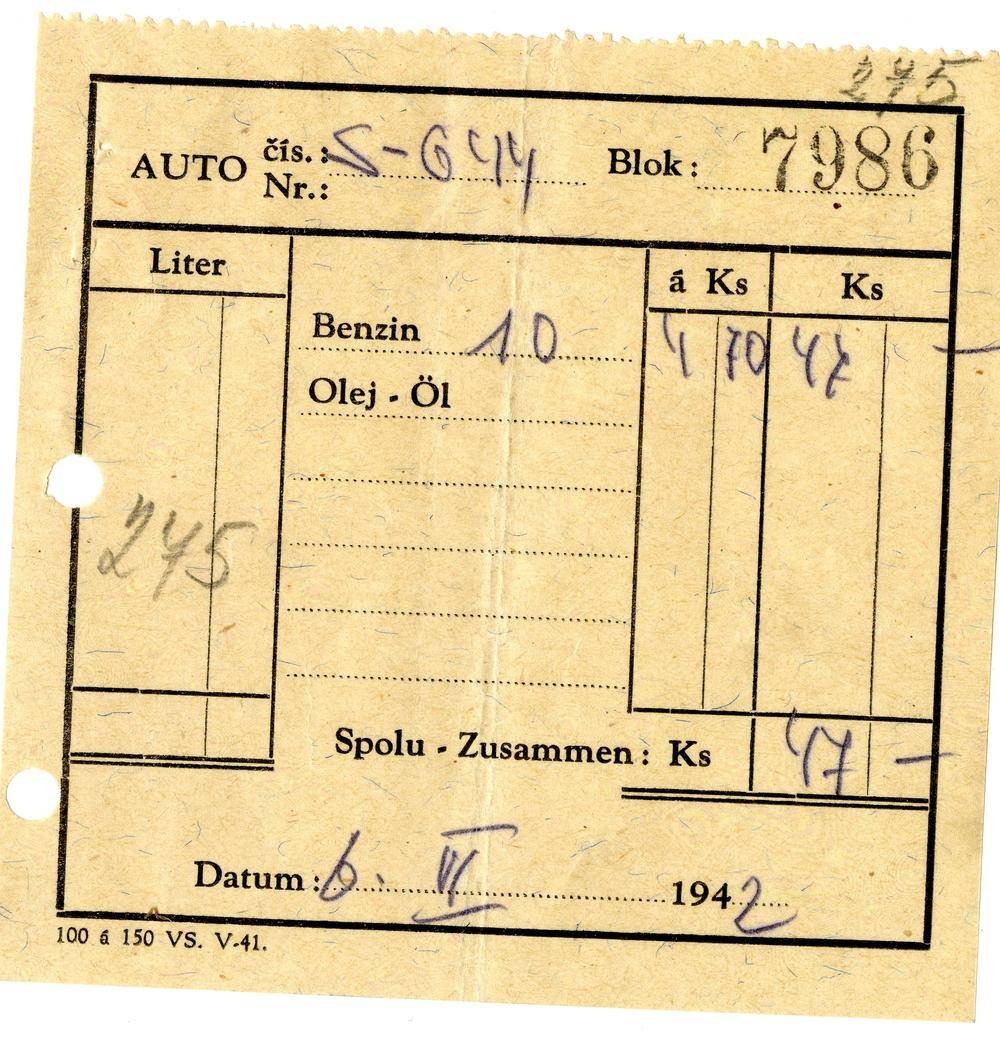 245
AUTO čís. : S-644
Nr.:
Blok : 7986
Liter
á Ks
Ks
Benzin 10 4 70 47 —
Olej - Öl
245
Spolu - Zusammen : Ks 47 —
Datum : 6. VI 1942
100 á 150 VS. V-41.